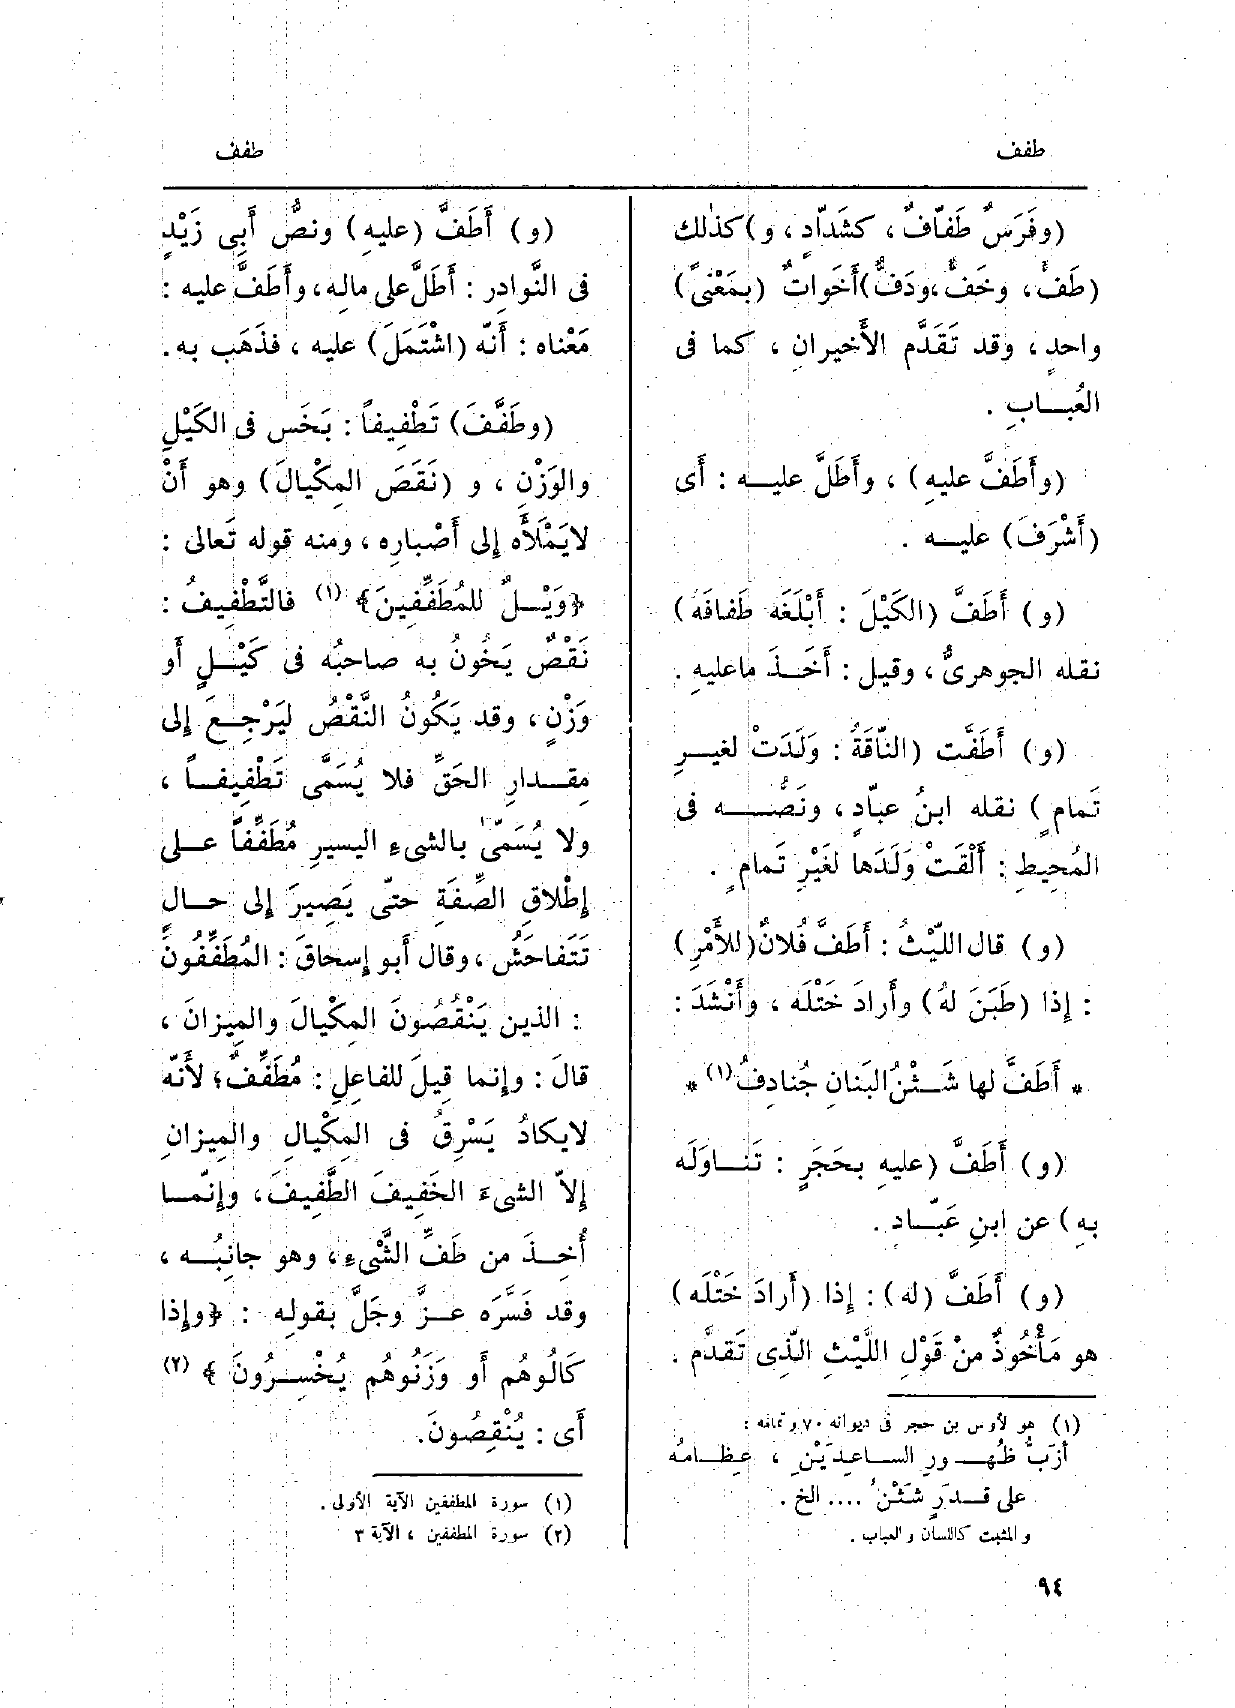 طفف
طفف
(وفَرَسٌ طَفّافٌ ، كشَدّادٍ ، و) كذٰلك
(طَفٌّ، وخَفٌّ ،ودَفٌّ) أَخَواتٌ (بمَعْنىً)
واحدٍ ، وقد تَقَدَّم الأَخيرانِ ، كما فى
العُبابِ .
(وأَطَفَّ عليهِ) ، وأَطَلَّ عليه : أَى
(أَشْرَفَ) عليه .
(و) أَطَفَّ (الكَيْلَ : أَبْلَغَه طَفافَهُ)
نقله الجوهرىُّ ، وقيل : أَخَذَ ماعليهِ .
(و) أَطَفَّت (النّاقَةُ : وَلَدَتْ لغيرِ
تَمامٍ ) نقله ابنُ عبّادٍ ، ونَصُّه فى
المُحِيطِ : أَلْقَتْ وَلَدَها لغَيْرِ تَمامٍ .
(و) قال اللَّيْثُ : أَطَفَّ فُلانٌ (للأَمْرِ)
: إذا (طَبَنَ لهُ) وأَرادَ خَتْلَه ، وأَنْشَدَ :
* أَطَفَّ لها شَثْنُ البَنانِ جُنادِفُ (١) *
(و) أَطَفَّ (عليهِ بحَجَرٍ : تَناوَلَه
بهِ ) عن ابنِ عَبّاد .
(و) أَطَفَّ (له) : إذا (أَرادَ خَتْلَه)
هو مَأْخُوذٌ منْ قَوْلِ اللَّيْثِ الّذِى تَقدَّم .
(١) هو لأوس بن حجر فى ديوانه ٧٠ وتمامه :
أزَبُّ ظُهورِ الساعِدَيْنِ ، عِظامُه
على قَدَرٍ شَثْنُ .... الخ .
والمثبت كاللسان والعباب .
(و) أَطَفَّ (عليهِ) ونصُّ أَبِى زَيْدٍ
فى النَّوادِر : أَطَلَّ على مالِه، وأَطَفَّ عليه :
مَعْناه : أَنّه (اشْتَمَلَ) عليه ، فذَهَب به.
(وطَفَّفَ) تَطْفِيفاً : بَخَس فى الكَيْلِ
والوَزْنِ ، و (نَقَصَ المِكْيالَ) وهو أَنْ
لايَمْلَأَه إلى أَصْبارِه ، ومنه قوله تَعالى :
﴿وَيْلٌ للمُطَفِّفِينَ﴾ (١) فالتَّطْفِيفُ :
نَقْصٌ يَخُونُ به صاحبُه فى كَيْلٍ أَو
وَزْنٍ ، وقد يَكُونُ النَّقْصُ ليَرْجِعَ إلى
مِقدارِ الحَقِّ فلا يُسَمَّى تَطْفِيفاً ،
ولا يُسَمَّى بالشىءِ اليسيرِ مُطَفِّفاً على
إطْلاقِ الصِّفَةِ حتّى يَصِيرَ إلى حالٍ
تَتَفاحَشُ ، وقال أَبو إسحاقَ : المُطَفِّفُونَ
: الذين يَنْقُصُونَ المِكْيالَ والمِيزانَ ،
قالَ : وإنما قِيلَ للفاعِلِ : مُطَفِّفٌ؛ لأَنّه
لايكادُ يَسْرِقُ فى المِكْيالِ والمِيزانِ
إلاّ الشىءَ الخَفِيفَ الطَّفِيفَ، وإنّما
أُخِذَ من طَفِّ الشَّىْءِ، وهو جانِبُه ،
وقد فَسَّرَه عزَّ وجَلَّ بقولِه : ﴿وإذا
كَالُوهُم أَو وَزَنُوهُم يُخْسِرُونَ ﴾ (٢)
أَى : يُنْقِصُونَ.
(١) سورة المطففين الآية الأولى .
(٢) سورة المطففين ، الآية ٣
٩٤